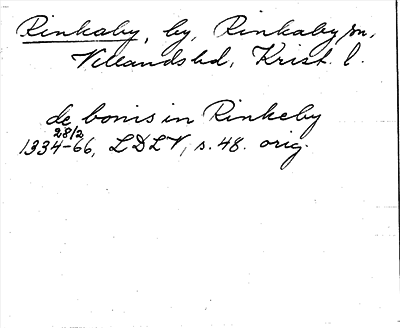 Rinkaby, by, Rinkaby sn,
Villands hd, Krist. l.
de bonis in Rinkeby
28/2
1334-66, LDLV, s. 48. orig.